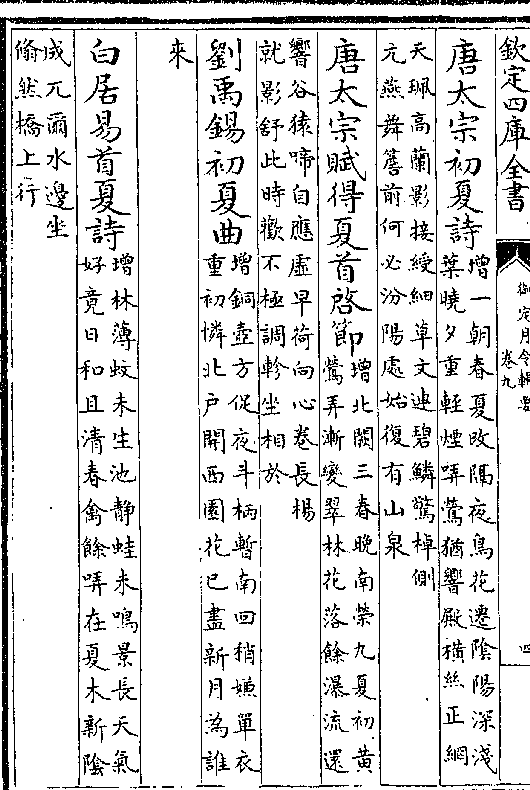 欽定四庫全書
御定月令輯要
卷九
四
唐太宗初夏詩增一朝春夏改隔夜鳥花遷陰陽深淺
葉曉夕重輕煙哢鶯猶響殿横絲正網
天珮高蘭影接綬細草文連碧鱗驚棹側
元燕舞簷前何必汾陽處始復有山泉
唐太宗賦得夏首啓節增北闕三春晚南榮九夏初黄
鶯弄漸變翠林花落餘瀑流還
響谷猿啼自應虚早荷向心卷長楊
就影舒此時歡不極調軫坐相於
劉禹錫初夏曲增銅壺方促夜斗柄暫南回稍嫌單衣
重初憐北户開西園花已盡新月為誰
來
白居易首夏詩增林薄蚊未生池静蛙未鳴景長天氣
好竟日和且清春禽餘哢在夏木新陰
成兀爾水邊坐
翛然橋上行